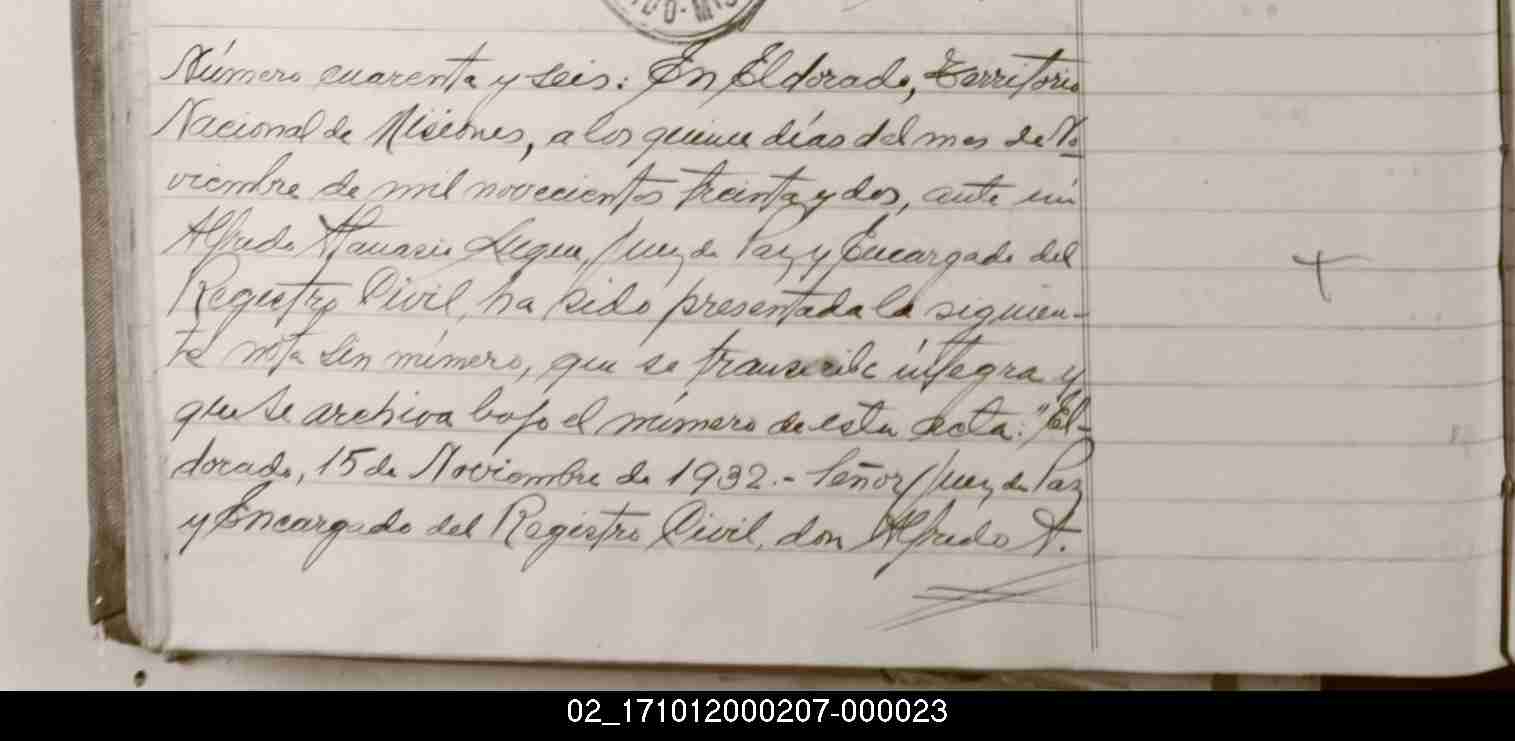 DO-MIS
Número cuarenta y seis: En Eldorado, Territorio
Nacional de Misiones, a los quince días del mes de No
viembre de mil novecientos treinta y dos, ante mí
Alfredo Atanasio Luque, Juez de Paz y Encargado del
Registro Civil, ha sido presentada la siguien-
te nota sin número, que se transcribe íntegra y
que se archiva bajo el número de esta acta: "El-
dorado, 15 de Noviembre de 1932.- Señor Juez de Paz
y Encargado del Registro Civil, don Alfredo A.
02_171012000207-000023